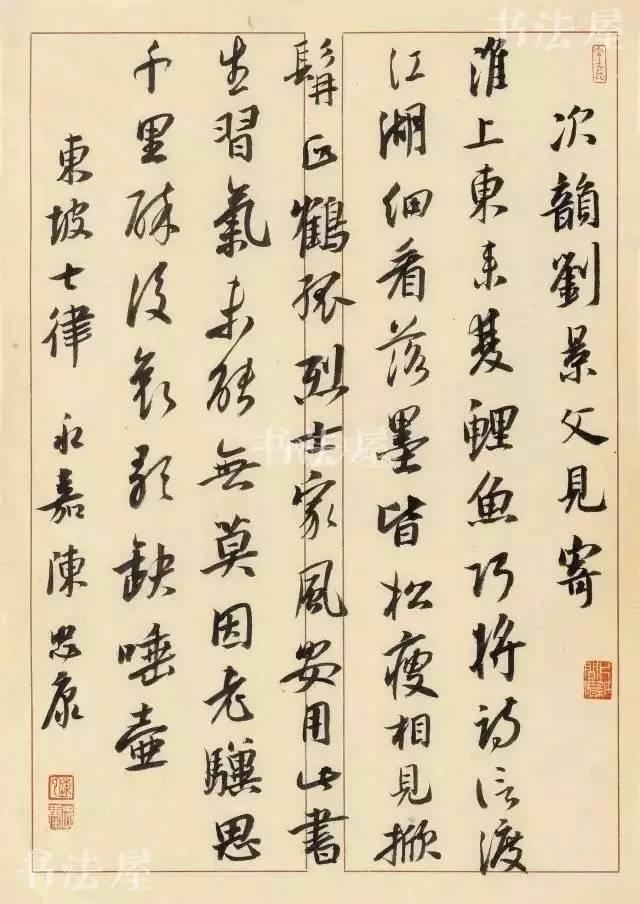 书法屋
次韻劉景文見寄
淮上東來雙鯉魚巧將詩信渡
江湖細看落墨皆松瘦相見掀
髯正鶴孤烈士家風安用此書
生習氣未能無莫因老驥思
千里醉後哀歌缺唾壺
東坡七律 永嘉陳忠康
书法屋
书法屋
书法屋